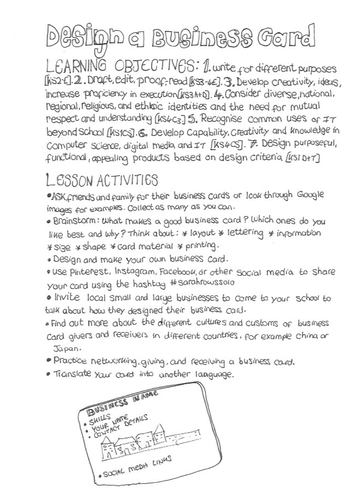 Design a Business Card
LEARNING OBJECTIVES: 1. write for different purposes
[KS2E] 2. Draft, edit, proof-read [KS3-4E]. 3. Develop creativity, ideas,
increase proficiency in execution [KS3A+D]. 4. Consider diverse, national,
regional, religious, and ethnic identities and the need for mutual
respect and understanding [KS4C3] 5. Recognise common uses of IT
beyond School [KS1CS]. 6. Develop Capability, Creativity and knowledge in
Computer science, digital media and IT [KS4CS]. 7. Design purposeful,
functional, appealing products based on design criteria [KS1D+T]
LESSON ACTIVITIES
• Ask friends and family for their business cards or look through Google
images for examples. Collect as many as you can.
• Brainstorm: What makes a good business card? Which ones do you
like best and why? Think about: * layout * lettering * information
* size * shape * card material * printing.
• Design and make your own business card.
• Use Pinterest, Instagram, Facebook, or other Social media to share
your card using the hashtag #sarahrowssolo
• Invite local small and large businesses to come to your school to
talk about how they designed their business card.
• Find out more about the different cultures and customs of business
card givers and receivers in different countries, for example China or
Japan.
• Practice networking, giving, and receiving a business card.
• Translate your card into another language.
BUSINESS NAME
• SKILLS
• YOUR NAME
• CONTACT DETAILS
• SOCIAL MEDIA LINKS